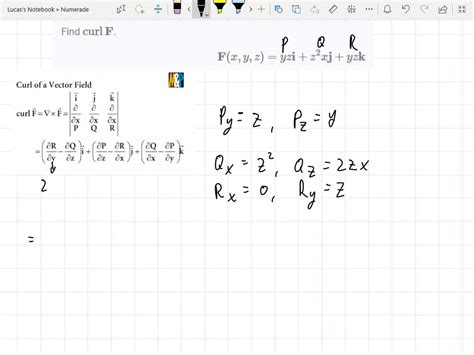 Lucas's Notebook ÷ Numerade
Find curl F.
P Q R
F(x, y, z) = yzi + z²xj + yzk
Curl of a Vector Field
i⃗ j⃗ k⃗
curl F⃗ = ∇ × F⃗ = | ∂/∂x ∂/∂x ∂/∂x |
P Q R
= (∂R/∂y − ∂Q/∂z) i⃗ + (∂P/∂z − ∂R/∂x) j⃗ + (∂Q/∂x − ∂P/∂y) k⃗
z
=
Py = z, Pz = y
Qx = z², Qz = 2zx
Rx = 0, Ry = z